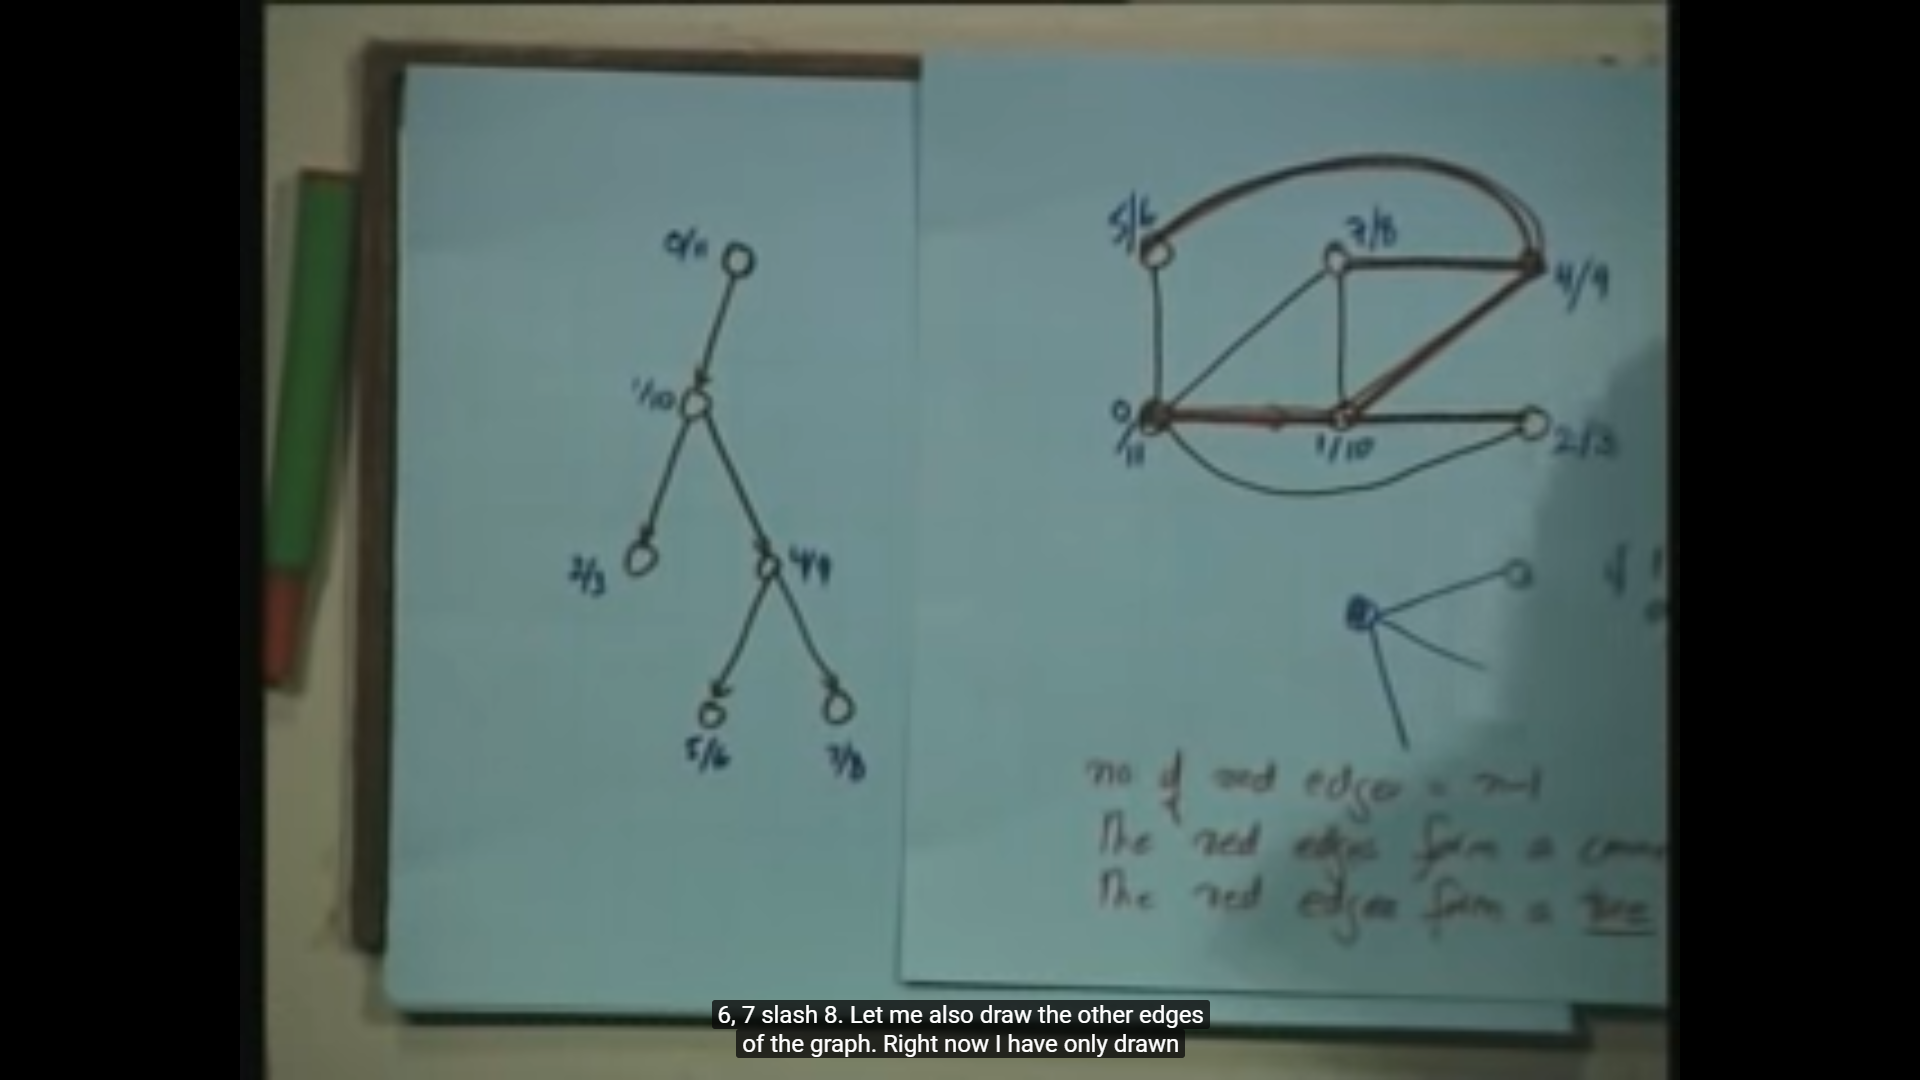 0/11
1/10
2/3
4/9
5/6
7/8
5/6
7/8
4/9
0/11
1/10
2/3
no of red edges = n-1
The red edges form a
The red edges form a tree
6, 7 slash 8. Let me also draw the other edges
of the graph. Right now I have only drawn